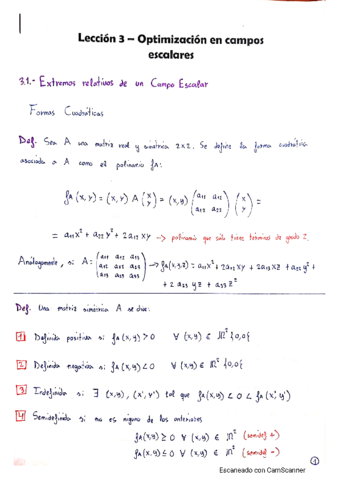 Lección 3 – Optimización en campos
escalares
3.1.- Extremos relativos de un Campo Escalar
Formas Cuadráticas
Def. Sea A una matriz real y simétrica 2x2. Se define la forma cuadrática
asociada a A como el polinomio fA:
fA (x, y) = (x, y) A (x y) = (x, y) (a11 a12 a12 a22) (x y) =
= a11x² + a22y² + 2a12xy → polinomio que solo tiene términos de grado 2.
Análogamente, si A = (a11 a12 a13 a12 a22 a23 a13 a23 a33) → fA(x,y,z) = a11x² + 2a12xy + 2a13xz + a22y² +
+ 2 a23 yz + a33z²
Def. Una matriz simétrica A se dice:
1) Definida positiva si fA(x,y) > 0 ∀ (x,y) ∈ ℝ² \ {0,0}
2) Definida negativa si fA(x,y) < 0 ∀ (x,y) ∈ ℝ² \ {0,0}
3) Indefinida si ∃ (x,y), (x', y') tal que fA(x,y) < 0 < fA(x',y')
4) Semidefinida si no es ninguna de las anteriores
fA(x,y) ≥ 0 ∀ (x,y) ∈ ℝ² (semidef +)
fA(x,y) ≤ 0 ∀ (x,y) ∈ ℝ² (semidef -)
1
Escaneado con CamScanner